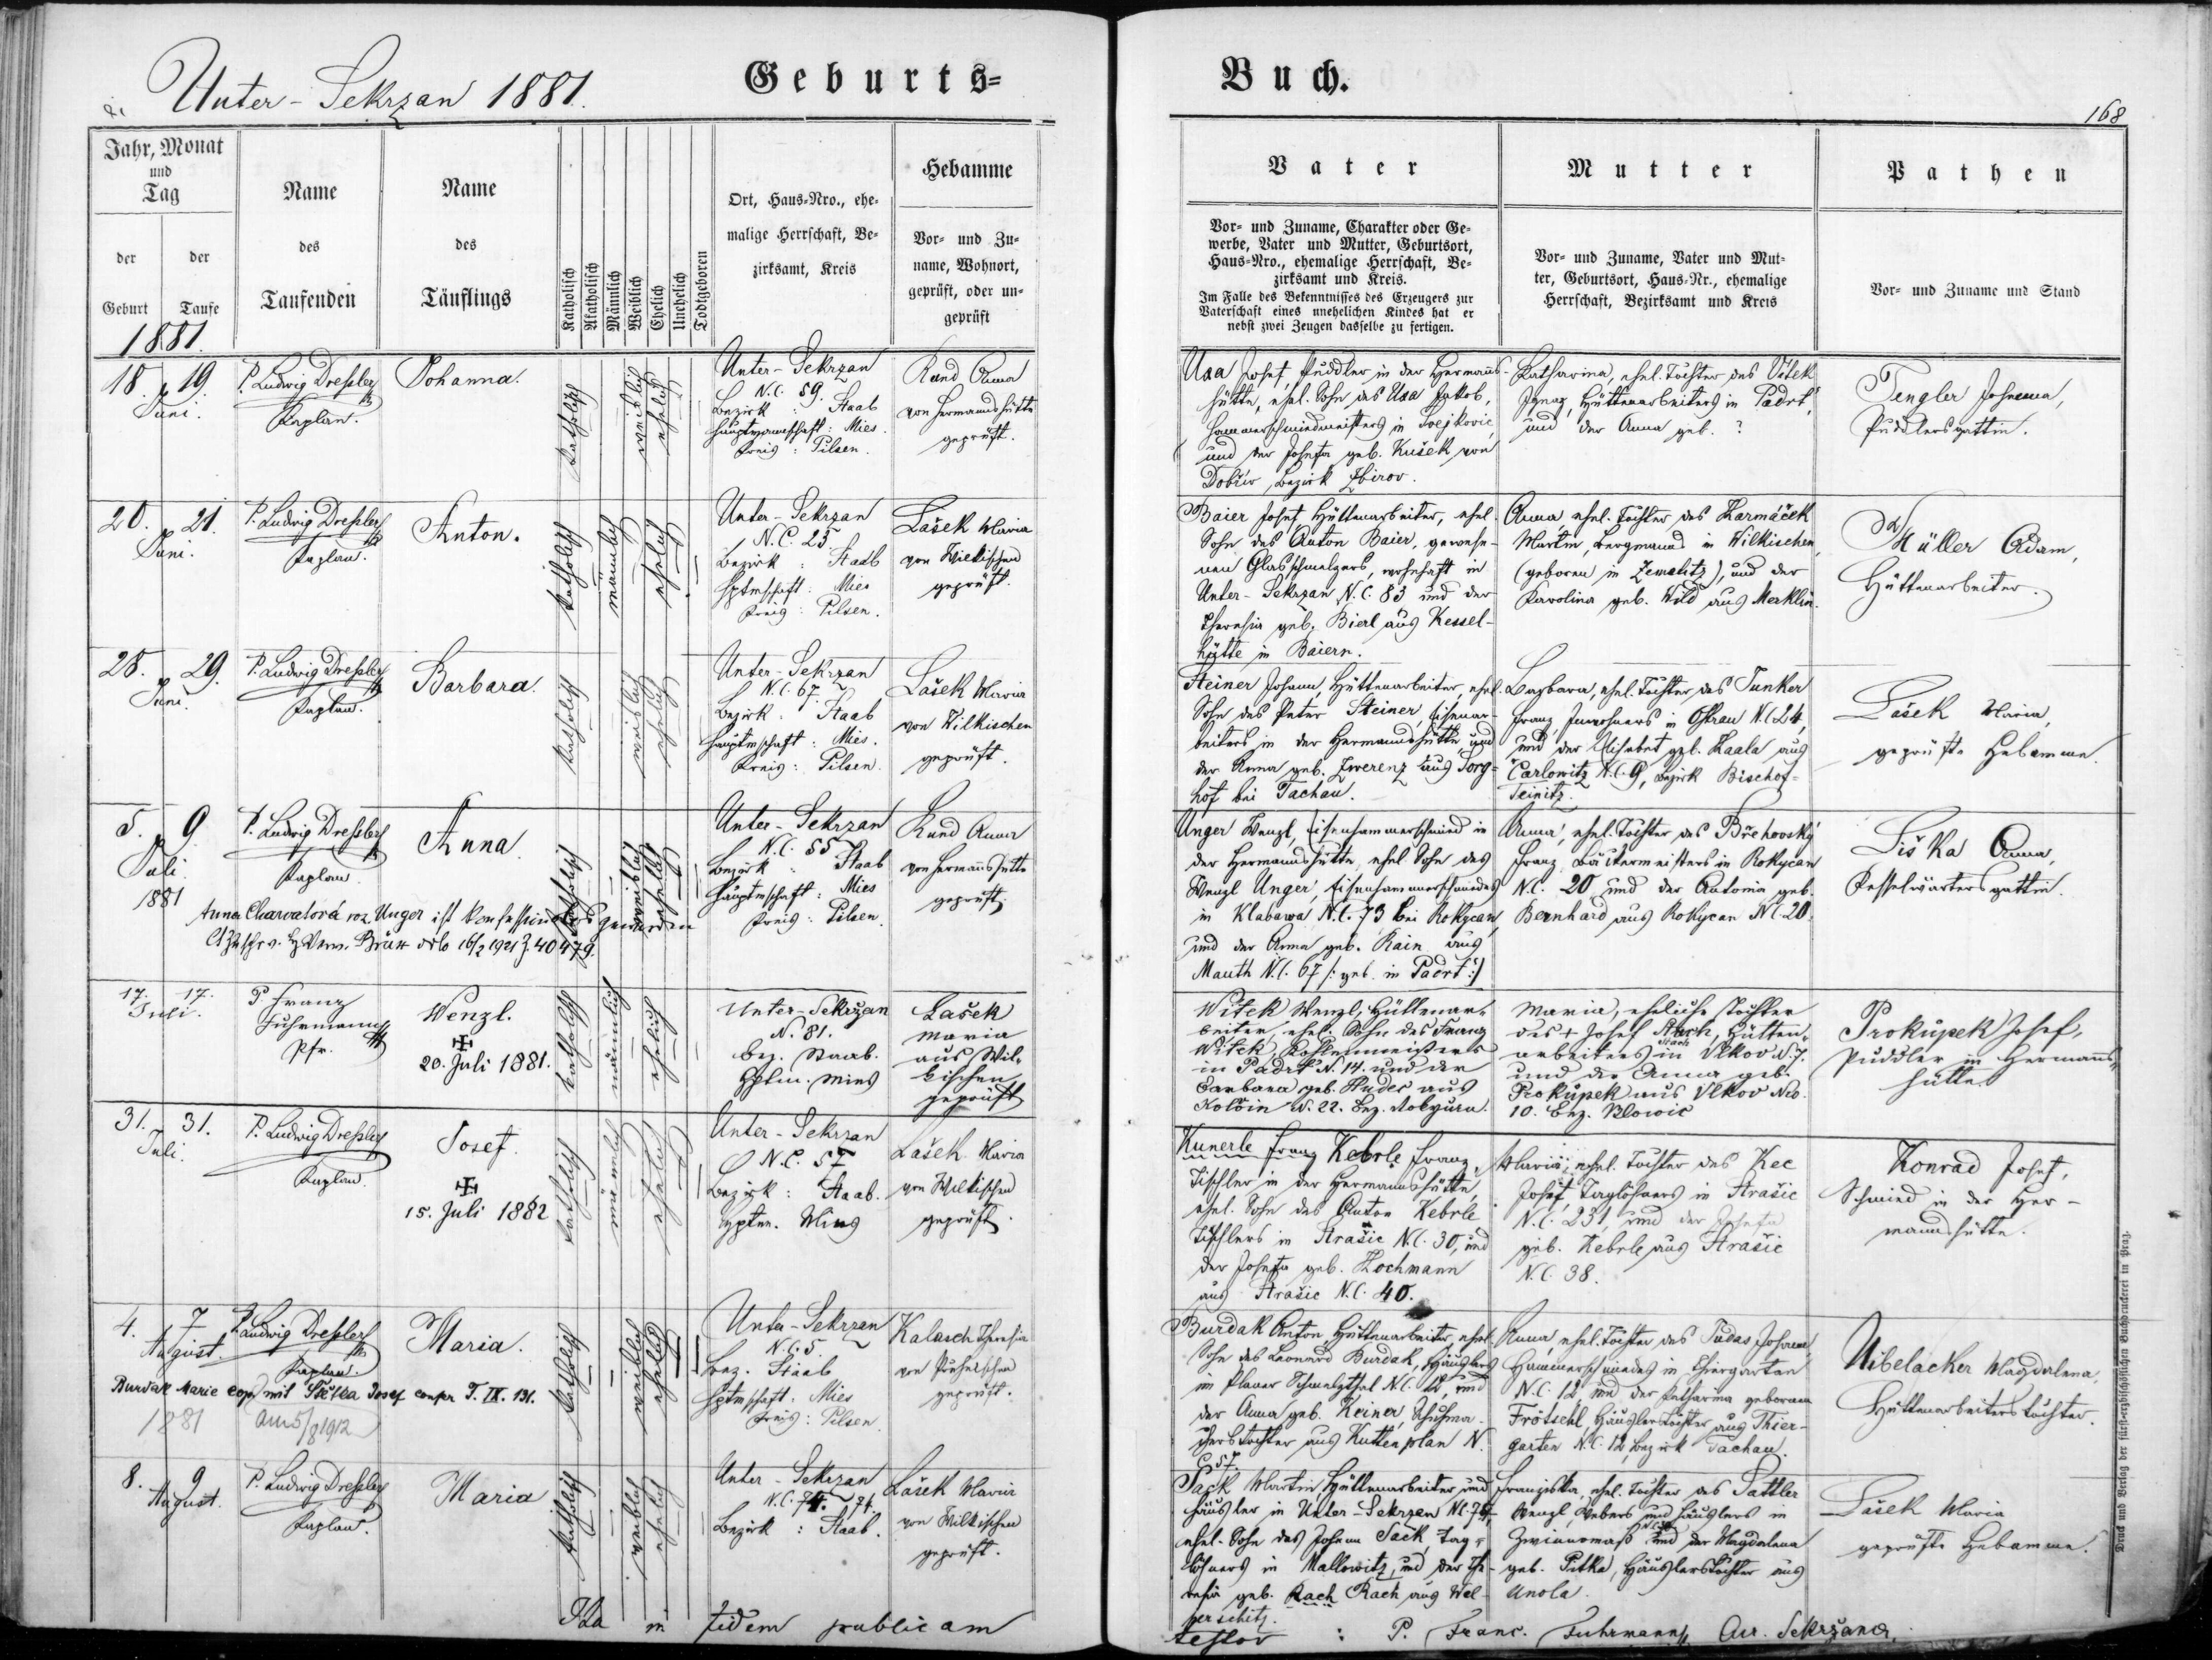 Unter-Sekrzan 1881.
Geburts=
Buch.
168
Jahr, Monat
und
Tag
der
Geburt
der
Taufe
Name
des
Taufenden
Name
des
Täuflings
Katholisch
Akatholisch
Männlich
Weiblich
Ehelich
Unehelich
Todtgeboren
Ort, Haus=Nro., ehe=
malige Herrschaft, Be=
zirksamt, Kreis
Hebamme
Vor= und Zu=
name, Wohnort,
geprüft, oder un=
geprüft
Vater
Vor= und Zuname, Charakter oder Ge=
werbe, Vater und Mutter, Geburtsort,
Haus=Nro., ehemalige Herrschaft, Be=
zirksamt und Kreis.
Im Falle des Bekenntnisses des Erzeugers zur
Vaterschaft eines unehelichen Kindes hat er
nebst zwei Zeugen dasselbe zu fertigen.
Mutter
Vor= und Zuname, Vater und Mut=
ter, Geburtsort, Haus=Nr., ehemalige
Herrschaft, Bezirksamt und Kreis
Pathen
Vor= und Zuname und Stand
1881.
18. 19.
Juni.
P. Ludwig Dressler
Kaplan.
Johanna.
katholisch
weiblich
ehelich
Unter-Sekrzan
N.C. 59.
Bezirk : Staab
Hauptmannschaft: Mies.
Kreis: Pilsen.
Kund Anna
von Hermannshütte
geprüft.
Uxa Josef, Puddler in der Hermanns-
hütte, ehel. Sohn des Uxa Jakob,
Hammerschmiedmeisters in
und der Josefa geb. Kušek von
Dobřiv, Bezirk Zbirov.
Katharina, ehel. Tochter des Vitek
Ignaz, Hüttenarbeiters in Padrt,
und der Anna geb. ?
Tengler Johanna,
Puddlersgattin.
20. 21.
Juni.
P. Ludwig Dressler
Kaplan.
Anton.
katholisch
männlich
ehelich
Unter-Sekrzan
N.C. 23
Bezirk : Staab
Hptmschaft: Mies
Kreis: Pilsen.
Lašek Maria
von Wilkischen
geprüft.
Baier Josef Hüttenarbeiter, ehel.
Sohn des Anton Baier, gewese-
nen Glasschmelzers, wohnhaft in
Unter-Sekrzan N.C. 83 und der
Theresia geb. Bierl aus Kessel-
hütte in Baiern.
Anna, ehel. Tochter des Karmáček
Martin, Bergmanns in Wilkischen,
(geboren in Zemetitz), und der
Karolina geb. Wild aus Merklin.
Müller Adam,
Hüttenarbeiter.
28. 29.
Juni.
P. Ludwig Dressler
Kaplan.
Barbara.
katholisch
weiblich
ehelich
Unter-Sekrzan
N.C. 67.
Bezirk: Staab
Hauptmschaft: Mies.
Kreis: Pilsen.
Lašek Maria
von Wilkischen
geprüft.
Steiner Johann, Hüttenarbeiter, ehel.
Sohn des Peter Steiner, Eisenar-
beiters in der Hermannshütte und
der Anna geb. Zwerenz aus Sorg-
hof bei Tachau.
Barbara, ehel. Tochter des Junker
Franz Inwohners in Ostrau N.C. 24,
und der Elisabet geb. Kaala aus
Carlowitz N.C. 9, Bezirk Bischof-
Teinitz.
Lašek Maria,
geprüfte Hebamme.
5. 9.
Juli.
1881
P. Ludwig Dressler
Kaplan
Anna
katholisch
weiblich
ehelich
Unter-Sekrzan
N.C. 55
Bezirk : Staab
Hauptmschaft: Mies
Kreis: Pilsen.
Kund Anna
von Hermannshütte
geprüft.
Unger Wenzl, Eisenhammerschmied in
der Hermannshütte, ehel. Sohn des
Wenzl Unger, Eisenhammerschmiedes
in Klabawa N.C. 73 bei Rokycan,
und der Anna geb. Rain aus
Mauth N.C. 67 /: geb. in Padrt :/
Anna, ehel. Tochter des Břehovský
Franz in Rokycan
N.C. 20 und der Antonia geb.
Bernhard aus Rokycan N.C. 20.
Liška Anna,
Kesselwärtersgattin.
Anna Charvatová roz. Unger ist konfessionslos geworden
Brüx ddo 16/2 1921 Z. 40479.
17. 17.
Juli.
P. Franz
Fuhrmann
Pfr.
Wenzl.
20. Juli 1881.
katholisch
männlich
ehelich
Unter-Sekrzan
N. 81.
Bez. Staab.
Hptm. Mies
Lašek
Maria
aus Wil-
kischen
geprüft
Witek Wenzl, Hüttenar-
beiter, ehel. Sohn des Franz
Witek, Kohlenmeisters
in Padrt N. 14. und der
Barbara geb. Hudec aus
Kolvin N. 22. Bez. Rokycan.
Maria, eheliche Tochter
des + Josef Stach, Hütten-
arbeiters in Vlkov N. 7.
und der Anna geb.
Prokupek aus Vlkov Nro.
10. Bez. Blowic
Prokůpek Josef,
Puddler in Hermanns-
hütte
31. 31.
Juli.
P. Ludwig Dressler
Kaplan.
Josef.
15. Juli 1882
katholisch
männlich
ehelich
Unter-Sekrzan
N.C. 57
Bezirk: Staab.
Hptm. Mies
Lašek Maria
von Wilkischen
geprüft.
Kunerle Franz Kebrle Franz,
Tischler in der Hermannshütte,
ehel. Sohn des Anton Kebrle
Tischlers in Strašic N.C. 30, und
der Josefa geb. Hochmann
aus Strašic N.C. 40.
Maria, ehel. Tochter des Kec
Josef, Taglöhners in Strašic
N.C. 231, und der Josefa
geb. Kebrle aus Strašic
N.C. 38.
Konrad Josef,
Schmied in der Her-
mannshütte.
4. 7
August.
P. Ludwig Dressler
Kaplan.
Maria.
katholisch
weiblich
ehelich
Unter-Sekrzan
N.C. 5.
Bez. Staab
Hptmschaft: Mies
Kreis: Pilsen.
Kalasch Theresia
von
geprüft.
Burdak Anton Hüttenarbeiter, ehel.
Sohn des Leonard Burdak, Häuslers
im Planer Schmelzthal N.C. 12, und
der Anna geb. Keiner Schuhma-
cherstochter aus Kuttenplan N.
C. 57.
Anna, ehel. Tochter des Judas Johann
Hammerschmiedes in Thiergarten
N.C. 12, und der Katharina geborenen
Frötschl Häuslerstochter aus Thier-
garten N.C. 12, Bezirk Tachau.
Uibelacker Magdalena,
Hüttenarbeiterstochter.
Burdak Marie cop. mit Josef T. IX. 131.
1881 am 5/8 1912
8. 9
August.
P. Ludwig Dressler
Kaplan.
Maria
katholisch
weiblich
ehelich
Unter-Sekrzan
N.C. 74. 74.
Bezirk : Staab.
Lašek Maria
von Wilkischen
geprüft.
Sack Martin, Hüttenarbeiter und
Häusler in Unter-Sekrzan N.C. 74,
ehel. Sohn des Johann Sack, Tag-
löhners in Mallowitz, und der The-
resia geb. Rach Rach aus Wel-
perschitz.
Franziska, ehel. Tochter des Sattler
Wenzl Webers und Häuslers in
und der Magdalena
geb. Pitka, Häuslerstochter aus
Unola.
Lašek Maria
geprüfte Hebamme.
Ita in fidem publicam
testor : P. Franc. Fuhrmann,
Druck und Verlag der fürst=erzbischöflichen Buchdruckerei in Prag.